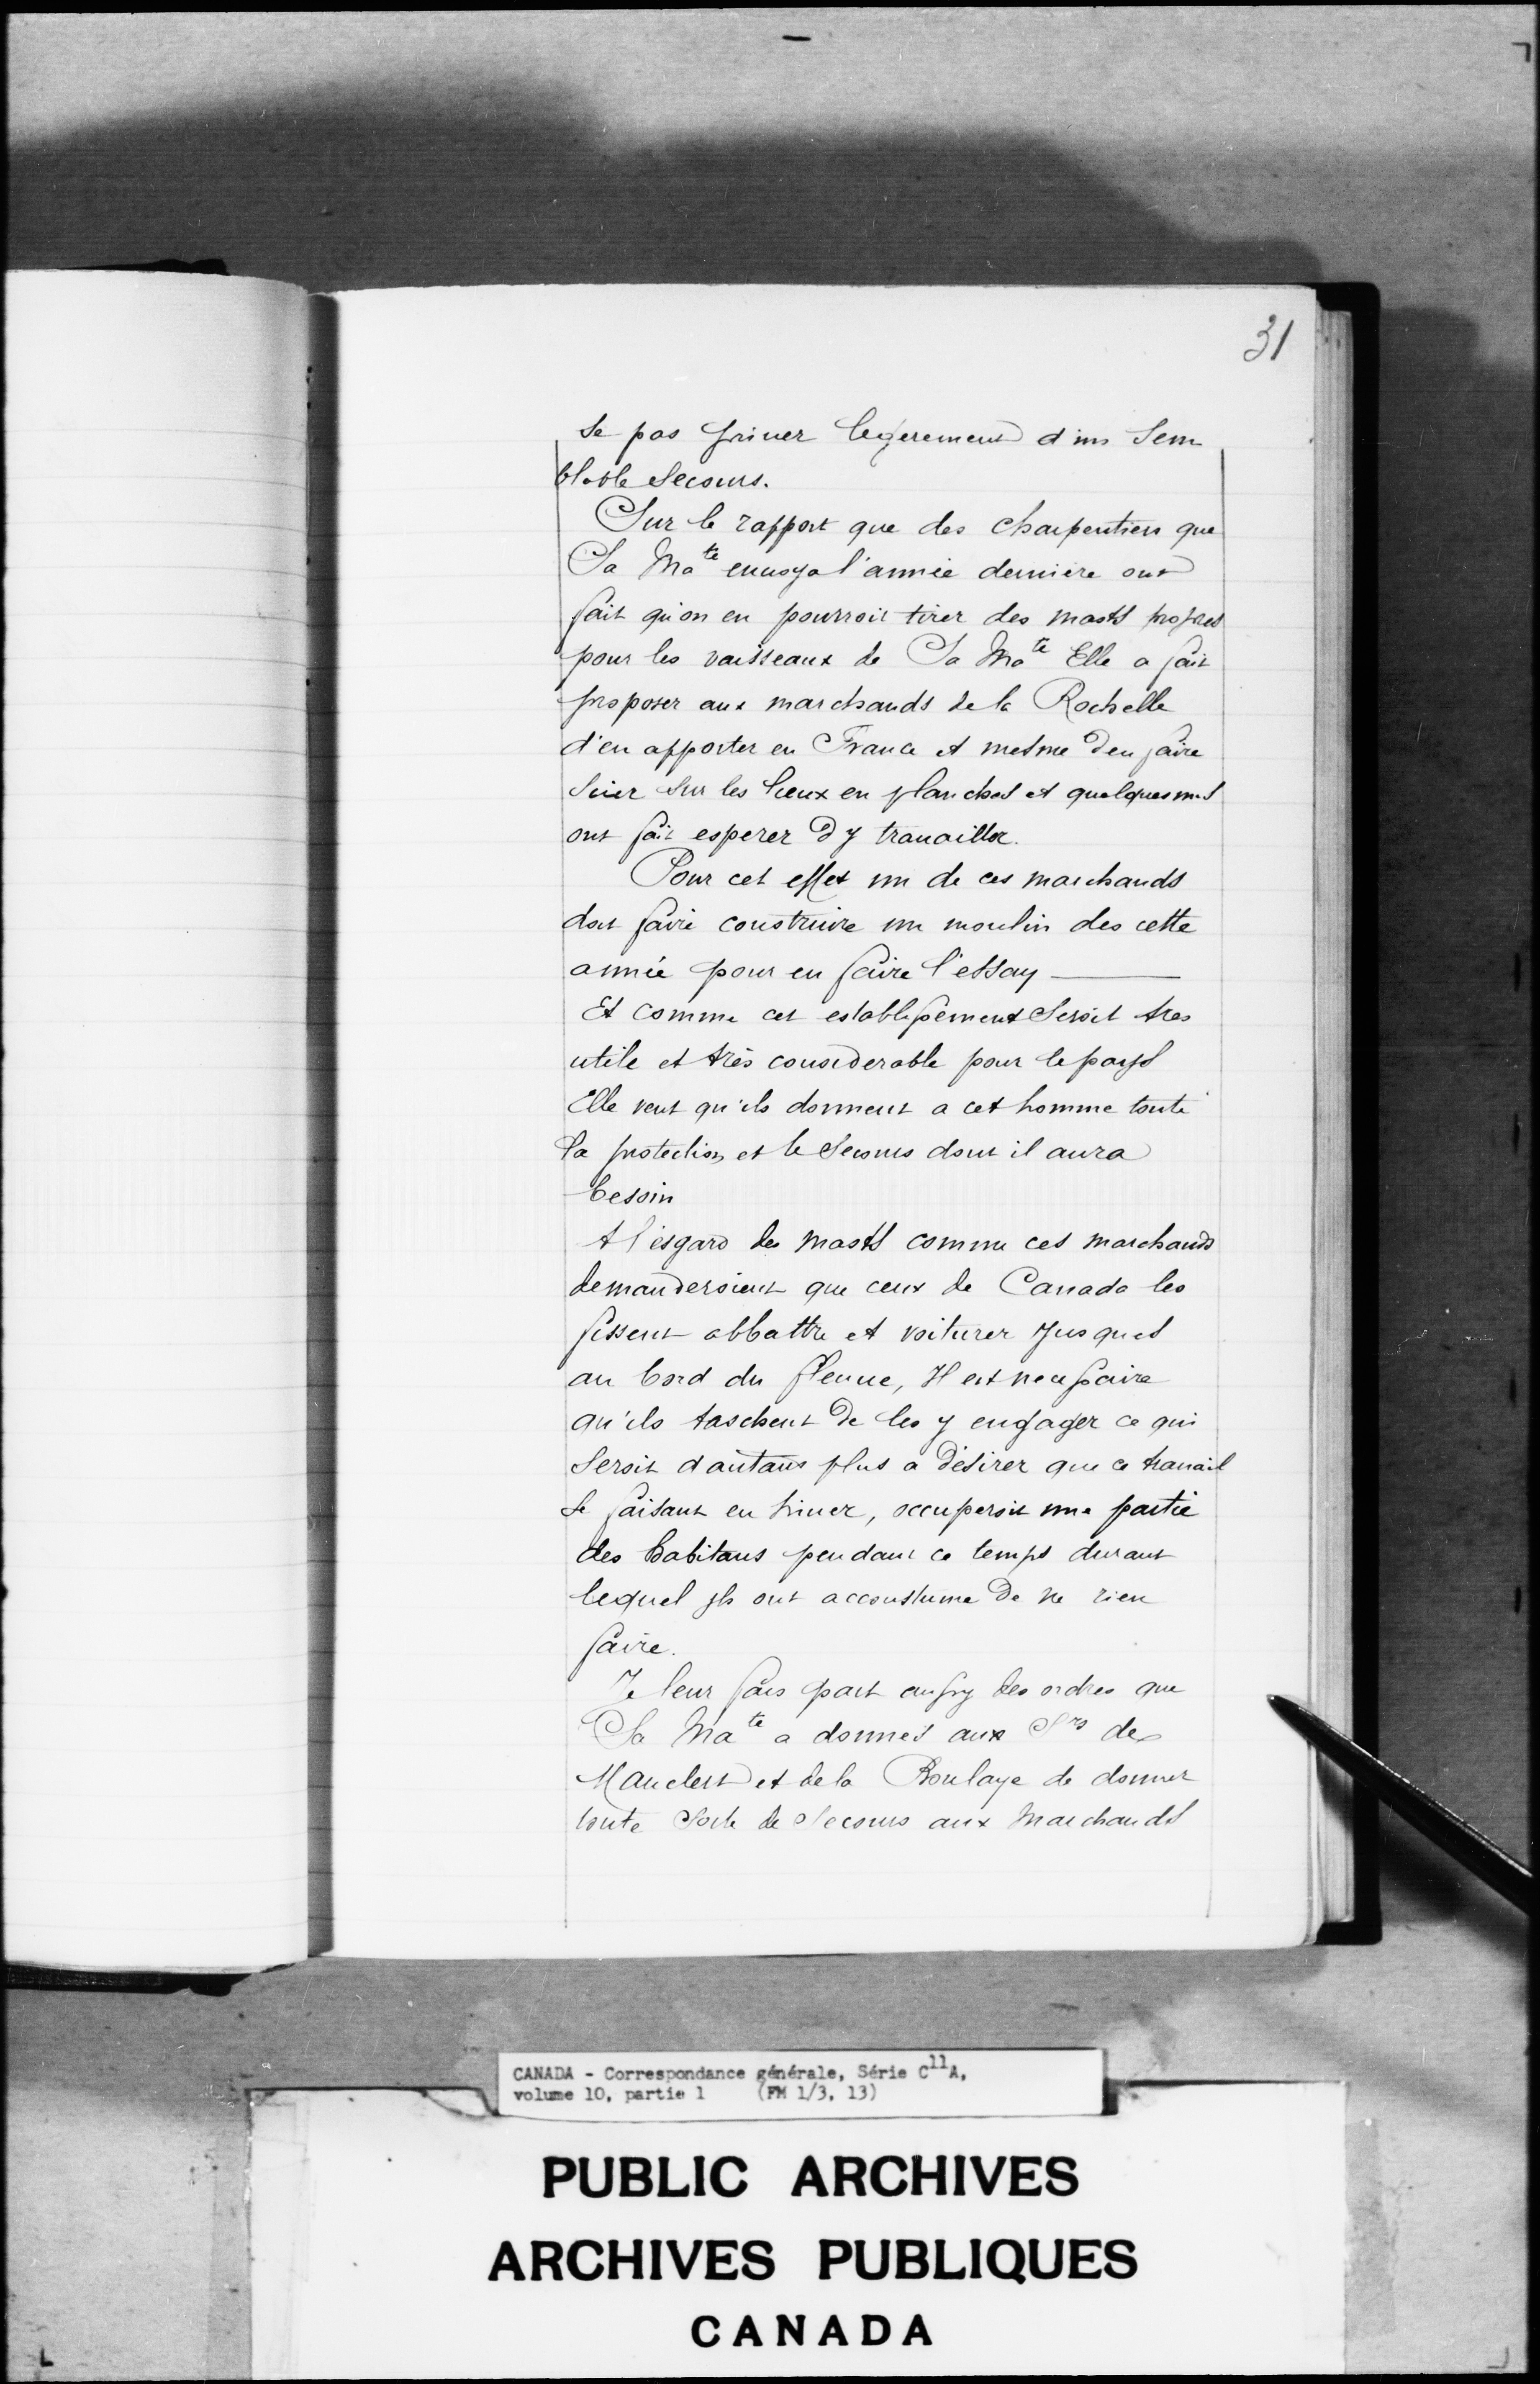 31
se pas priuer legerement d'un sem
blable secours.
Sur le rapport que des charpentiers que
Sa Ma^te enuoya l'année derniere ont
fait qu'on en pourroit tirer des masts propres
pour les vaisseaux de Sa Ma^te Elle a fait
proposer aux marchands de la Rochelle
d'en apporter en France et mesme d'en faire
scier sur les lieux en planches et quelques uns
ont fait esperer d'y trauailler.
Pour cet effet un de ces marchands
doit faire construire un moulin des cette
année pour en faire l'essay
Et comme cet establissement seroit tres
utile et très considerable pour le pays
Elle veut qu'ils donnent a cet homme toute
la protection et le secours dont il aura
besoin
A l'esgard des masts comme ces marchands
demanderoient que ceux de Canada les
fissent abbattre et voiturer jusques
au bord du fleuue, Il est necessaire
qu'ils taschent de les y engager ce qui
seroit d'autant plus a désirer que ce trauail
se faisant en hiuer, occuperoit une partie
des habitans pendant ce temps durant
lequel ils ont accoustumé de ne rien
faire.
Je leur fais part aussy des ordres que
Sa Ma^te a donnés aux S^rs de
Mauclerc et de la Boulaye de donner
toute sorte de secours aux marchands
CANADA - Correspondance générale, Série C^11A,
volume 10, partie 1 (FM 1/3, 13)
PUBLIC ARCHIVES
ARCHIVES PUBLIQUES
CANADA